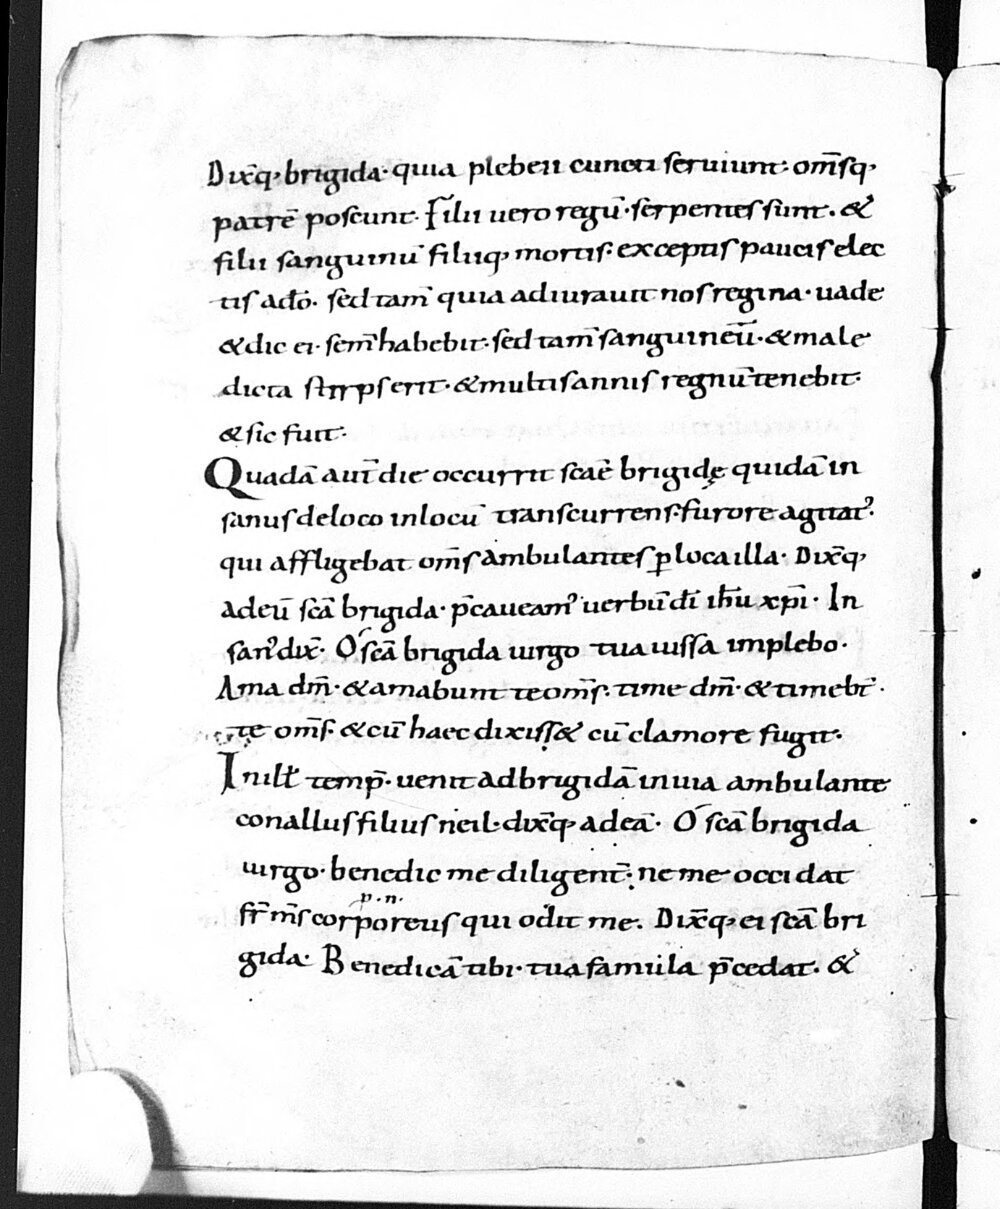 Dix̄q; brigida· quia plebeii cuncti seruiunt· om̄sq;
patrē poscunt· Filii uero regū· serpentes sunt. &
filii sanguinū filiiq; mortis· exceptis paucis elec
tis ado̅· sed tam̄ quia adiurauit nos regina· uade
& dic ei· sem̄ habebit· sed tam̄ sanguineū· & male
dicta stirps erit· & multis annis regnū tenebit·
& sic fuit·
Quadā aut̄ die occurrit scāe brigidę quidā in
sanus de loco in locū transcurrens· furore agitatꝰ·
qui affligebat om̄s ambulantes ꝑ loca illa· Dix̄q;
ad eū scā brigida· p̄caueamꝰ uerbū dī ihū xpī· In
sanꝰ dix̄· O scā brigida uirgo tua iussa implebo·
Ama dm̄· & amabunt te om̄s· time dm̄· & timebt̄·
te om̄s· & cū haec dixiss& cū clamore fugit·
In ill̄ temp̄· uenit ad brigidā in uia ambulante
conallus filius neil· dix̄q; ad eā· O scā brigida
uirgo· benedic me diligent̄· ne me occidat
p · n·
fr̄ m̄s corporeus qui odit me. Dix̄q; ei scā bri
gida· Benedicā tibi· tua famula p̄cedat· &